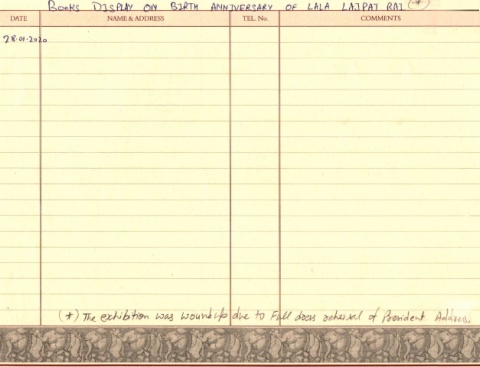 BOOKS DISPLAY ON BIRTH ANNIVERSARY OF LALA LAJPAT RAI (*)
DATE NAME & ADDRESS TEL. No. COMMENTS
28.01.2020
(*) The exhibition was woundup due to Full dress rehersal of President Address.